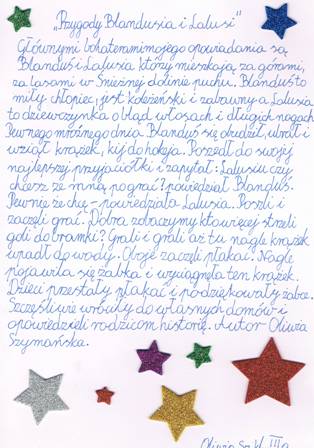 „Przygody Blandusia i Lalusi"
Głównymi bohaterami mojego opowiadania są
Blanduś i Lalusia którzy mieszkają za górami,
za lasami w Śnieżnej dolinie puchu. Blanduś to
miły chłopiec, jest koleżeński i zabawny a Lalusia
to dziewczynka o bląd włosach i długich nogach
Pewnego mroźnego dnia Blanduś się obudził, ubrał i
wziął krążek, kij do hokeja. Poszedł do swojej
najlepszej przyjaciółki i zapytał: Lalusiu czy
chcesz ze mną pograć? powiedział Blanduś.
Pewnie że chcę - powiedziała Lalusia. Poszli i
zaczęli grać. Dobra zobaczymy kto więcej strzeli
goli do bramki? Grali i grali aż tu nagle krążek
wpadł do wody. Oboje zaczęli płakać. Nagle
pojawiła się żabka i wyciągnęła ten krążek.
Dzieci przestały płakać i podziękowały żabce.
Szczęśliwie wróciły do własnych domów i
opowiedzieli rodzicom historię. Autor Oliwia
Szymańska.
Oliwia Sz. kl. III a